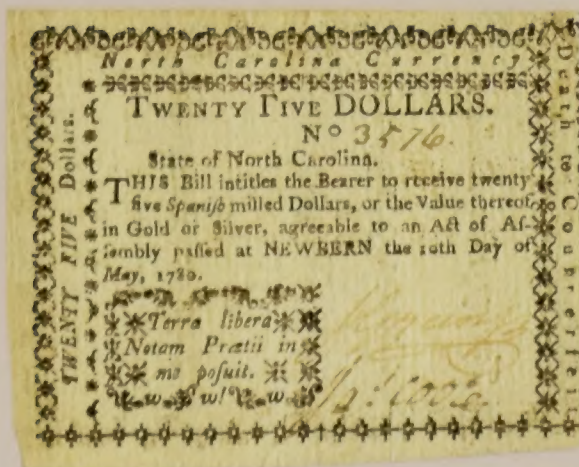 North Carolina Currency
TWENTY FIVE DOLLARS.
No 3576.
State of North Carolina.
THIS Bill intitles the Bearer to receive twenty
five Spanish milled Dollars, or the Value thereof
in Gold or Silver, agreeable to an Act of As-
sembly passed at NEWBERN the 10th Day of
May, 1780.
Terra libera
Notam Prætii in
me posuit.
w w! w
Jas Coor
TWENTY FIVE Dollars.
Death to Counterfeit